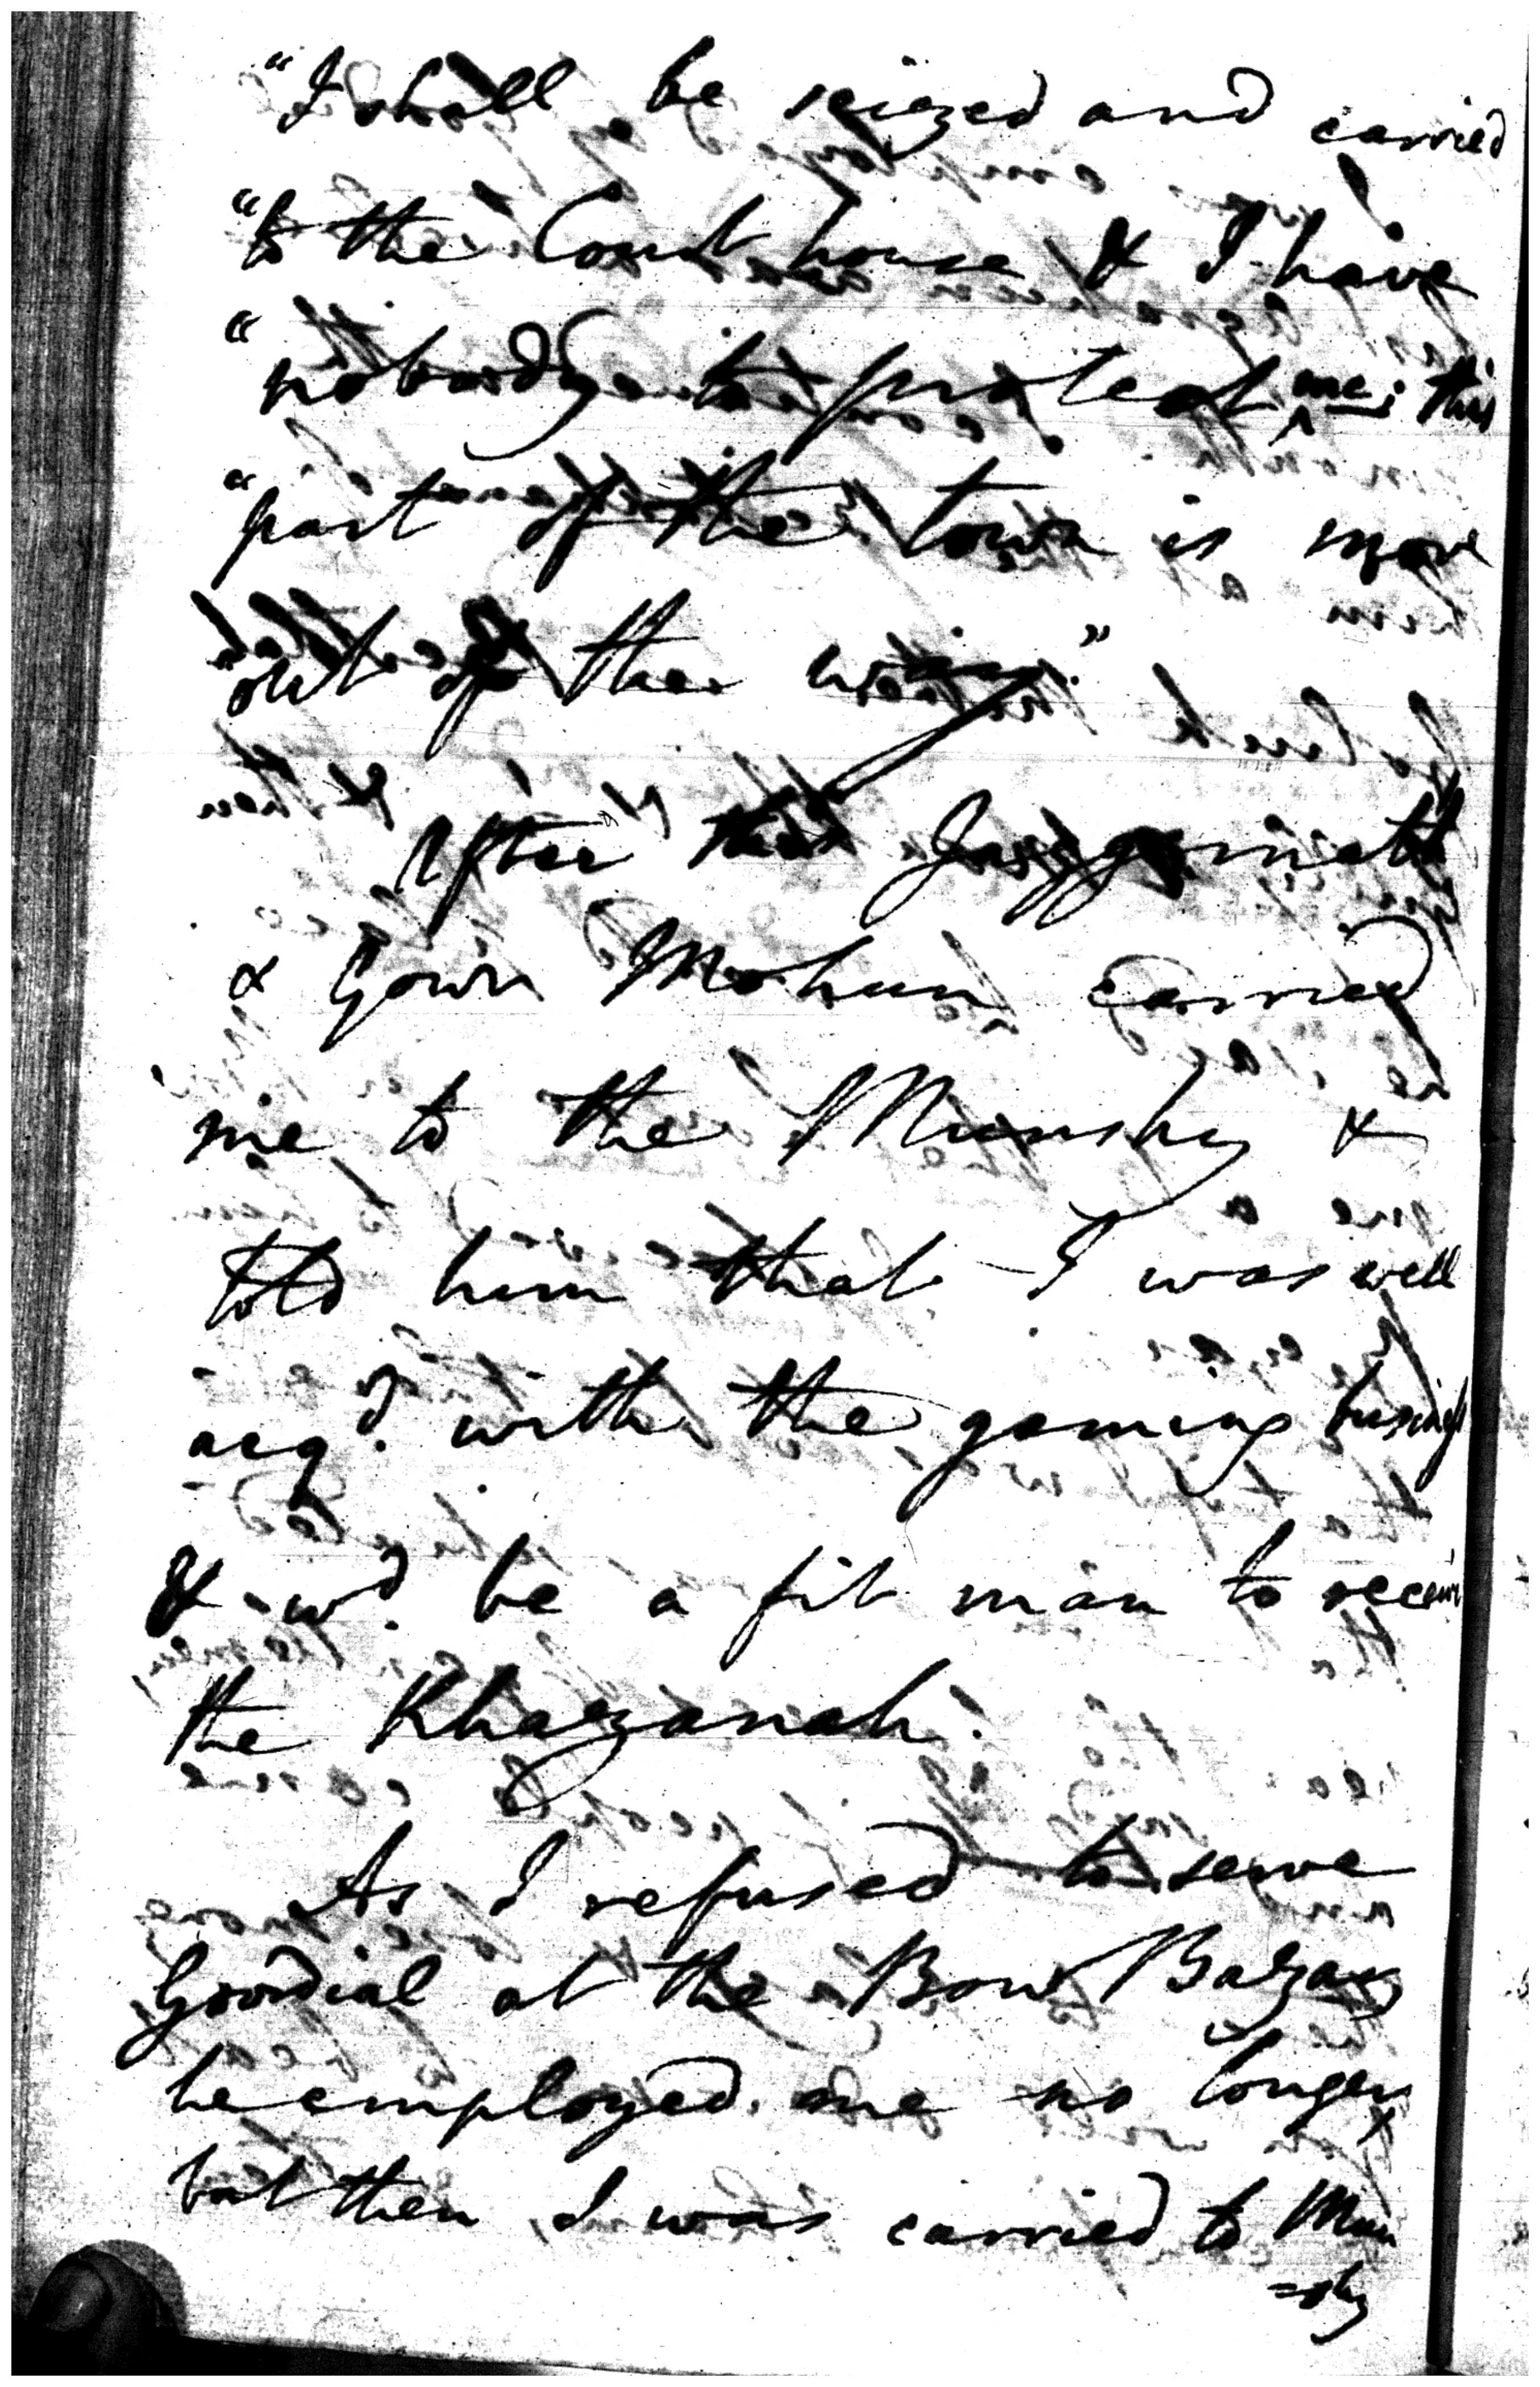 "I shall be seized and carried
"to the Court house & I have
"nobody to protect me; this
"part of the town is more
out of the way."
After this Juggernath
& Gowr Mohun carried
me to the Munshy &
told him that I was well
acqd. with the gaming business
& wd. be a fit man to receive
the Khazanah.
As I refused to serve
Goordial at the Bow Bazar
he employed me no longer
but then I was carried to Mun
=shy